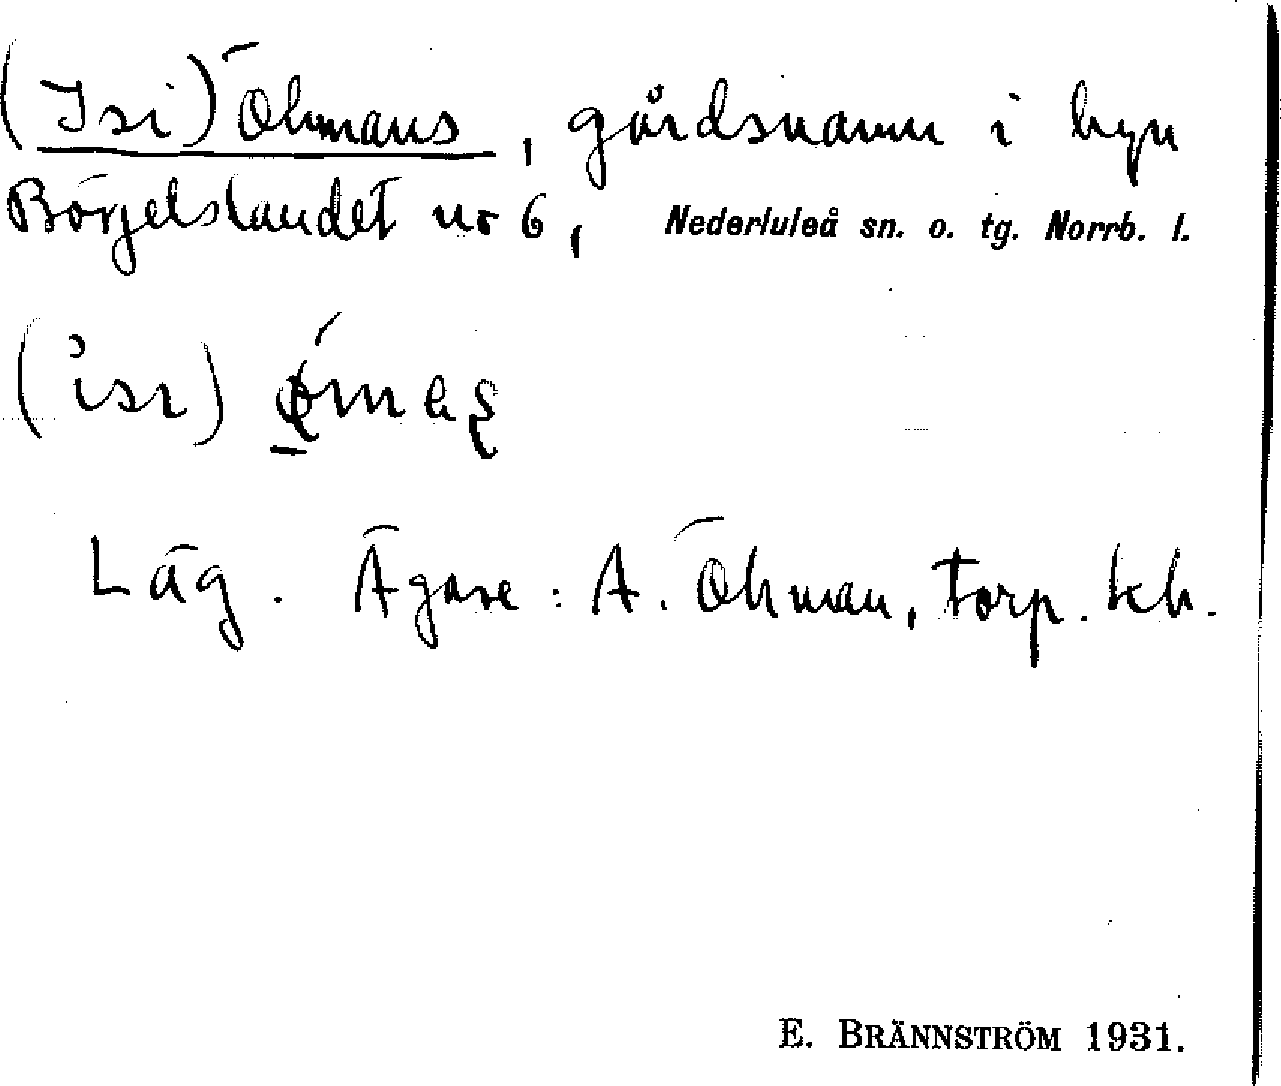 (Isi) Öhmans, gårdsnamn i byn
Börjelslandet nr 6, Nederluleå sn. o. tg. Norrb. l.
Läg. Ägare: A. Öhman, torp. tch.
E. BRÄNNSTRÖM 1931.